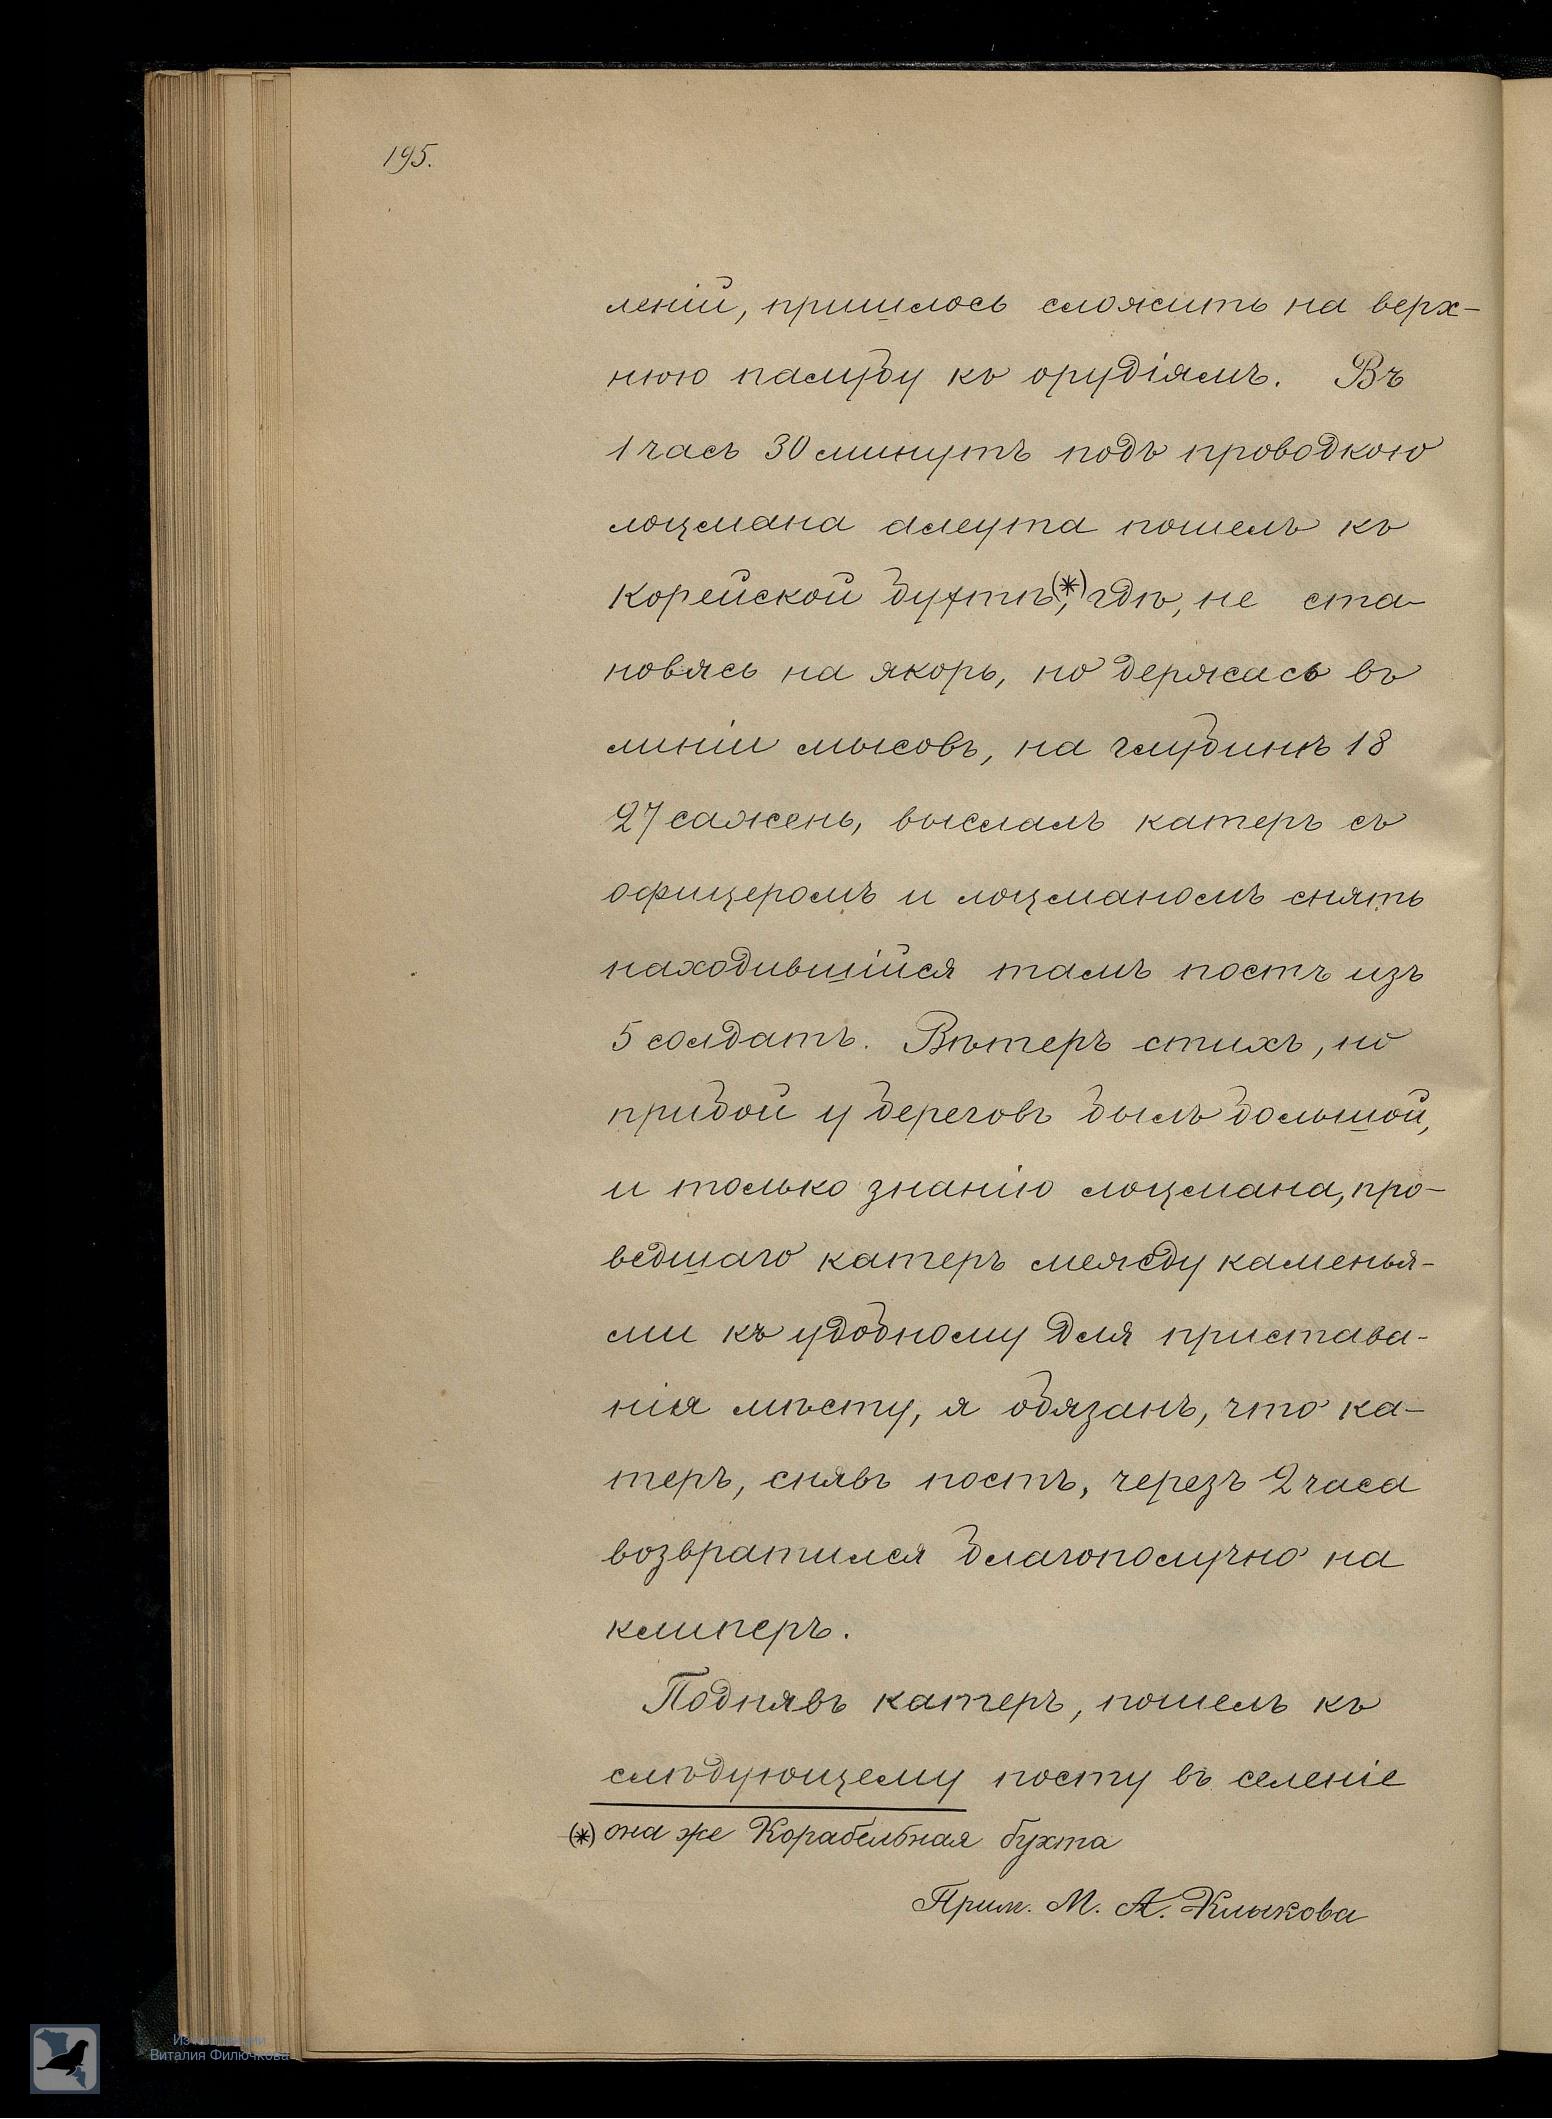 195.
леній, пришлось сложить на верх-
нюю палубу ко орудіямъ. Въ
1 часъ 30 минутъ подъ проводкою
лоцмана алеута пошелъ къ
Корейской бухтѣ(*), гдѣ, не ста-
новясь на якорь, но держась въ
линіи мысовъ, на глубинѣ 18
27 сажень, выслалъ катеръ съ
офицеромъ и лоцманомъ снять
находившійся тамъ постъ изъ
5 солдатъ. Вѣтеръ стихъ, но
прибой у береговъ былъ большой,
и только знанію лоцмана, про-
ведшаго катеръ между каменья-
ми къ удобному для пристава-
нія мѣсту, я обязанъ, что ка-
теръ, снявъ постъ, черезъ 2 часа
возвратился благополучно на
клиперъ.
Поднявъ катеръ, пошелъ къ
слѣдующему посту въ селеніе
(*) она же Корабельная бухта
Прим. М. А. Клыкова
Из коллекции
Виталия Филючкова